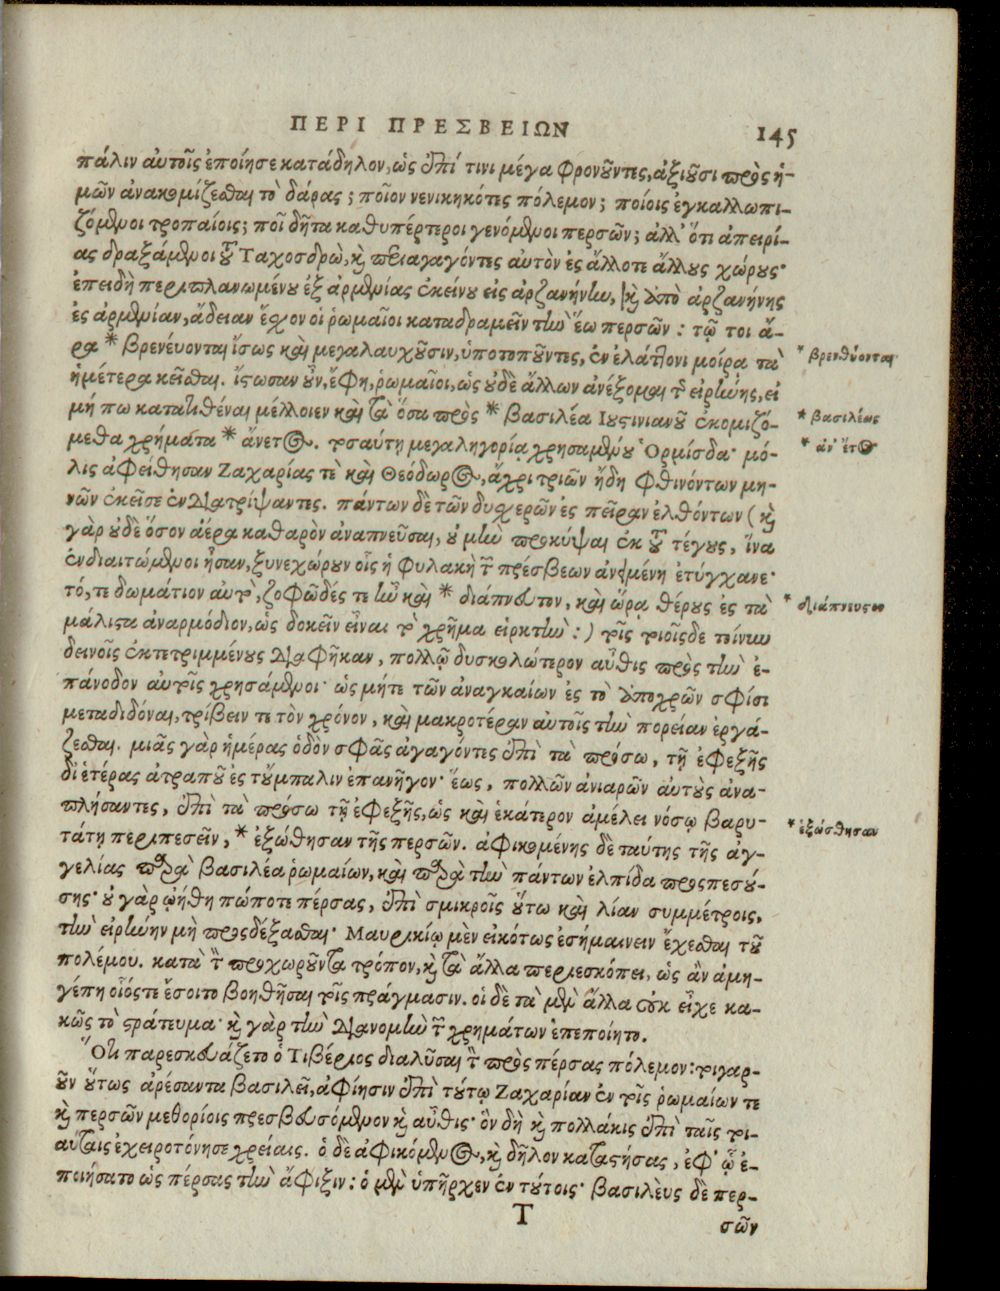 ΠΕΡΙ ΠΡΕΣΒΕΙΩΝ 145
πάλιν αὐτοῖς ἐποίησε κατάδηλον, ὡς ἐπί τινι μέγα φρονοῦντες, ἀξιοῦσι πρὸς ἡ-
μῶν ἀνακομίζεσθαι τὸ δάρας; ποῖον νενικηκότες πόλεμον; ποίοις ἐγκαλλωπι-
ζόμενοι τροπαίοις; ποῖ δῆτα καθυπέρτεροι γενόμενοι περσῶν; ἀλλ' ὅτι ἀπειρί-
ας δραξάμενοι τοῦ Ταχοσδρὼ, καὶ περιαγαγόντες αὐτὸν ἐς ἄλλοτε ἄλλους χώρους·
ἐπειδὴ περιπλανωμένου ἐξ ἀρμενίας ἐκείνου εἰς ἀρζανήνην, καὶ ἀπὸ ἀρζανήνης
ἐς ἀρμενίαν, ἄδειαν ἔσχον οἱ ῥωμαῖοι καταδραμεῖν τὴν ἕω περσῶν: τῷ τοι ἄ-
ρα * βρενέυονται ἴσως καὶ μεγαλαυχοῦσιν, ὑποτοποῦντες, ἐν ἐλάττονι μοίρᾳ τὰ
* βρενθύονται
ἡμέτερα κεῖσθαι. ἴστωσαν οὖν, ἔφη, ῥωμαῖοι, ὡς οὐδὲ ἄλλων ἀνέξομαι τῆς εἰρήνης, εἰ
μή πω κατατιθέναι μέλλοιεν καὶ τὰ ὅσα πρὸς * βασιλέα Ιουστινιανοῦ ἐκομιζό-
* βασιλέως
μεθα χρήματα * ἄνετος. τοσαύτῃ μεγαληγορίᾳ χρησαμένου Ὁρμίσδα· μό-
* ἀν' ἔτος
λις ἀφείθησαν Ζαχαρίας τὲ καὶ Θεόδωρος, ἄχρι τριῶν ἤδη φθινόντων μη-
νῶν ἐκεῖσε ἐνδιατρίψαντες. πάντων δὲ τῶν δυσχερῶν ἐς πεῖραν ἐλθόντων (καὶ
γὰρ οὐδὲ ὅσον ἀέρα καθαρὸν ἀναπνεῦσαι, οὐ μὴν προκύψαι ἐκ τοῦ τέγους, ἵνα
ἐνδιαιτώμενοι ἦσαν, ξυνεχώρουν οἷς ἡ φυλακὴ τῶν πρέσβεων ἀνειμένη ἐτύγχανε·
τό, τε δωμάτιον αὐτὸ, ζοφῶδές τε ἦν καὶ * διάπνευτον, καὶ ὥρᾳ θέρους ἐς τὰ
* διάπνευστον
μάλιστα ἀναρμόδιον, ὡς δοκεῖν εἶναι τὸ χρῆμα εἱρκτήν:) τοῖς τοιοῖσδε τοίνυν
δεινοῖς ἐκτετριμμένους διαφῆκαν, πολλῷ δυσκολώτερον αὖθις πρὸς τὴν ἐ-
πάνοδον αὐτοῖς χρησάμενοι· ὡς μήτε τῶν ἀναγκαίων ἐς τὸ ἀποχρῶν σφίσι
μεταδιδόναι, τρίβειν τε τὸν χρόνον, καὶ μακροτέραν αὐτοῖς τὴν πορείαν ἐργά-
ζεσθαι. μιᾶς γὰρ ἡμέρας ὁδὸν σφᾶς ἀγαγόντες ἐπὶ τὰ πρόσω, τῇ ἐφεξῆς
δι' ἑτέρας ἀτραποῦ ἐς τοὔμπαλιν ἐπανῆγον· ἕως, πολλῶν ἀνιαρῶν αὐτοὺς ἀνα-
πλήσαντες, ἐπὶ τὰ πρόσω τῇ ἐφεξῆς, ὡς καὶ ἑκάτερον ἀμέλει νόσῳ βαρυ-
τάτῃ περιπεσεῖν, * ἐξώθησαν τῆς περσῶν. ἀφικομένης δὲ ταύτης τῆς ἀγ-
* ἐξώσθησαν
γελίας παρὰ βασιλέα ῥωμαίων, καὶ παρὰ τὴν πάντων ἐλπίδα προσπεσού-
σης· οὐ γὰρ ᾠήθη πώποτε πέρσας, ἐπὶ σμικροῖς οὕτω καὶ λίαν συμμέτροις,
τὴν εἰρήνην μὴ προσδέξασθαι· Μαυρικίῳ μὲν εἰκότως ἐσήμαινειν ἔχεσθαι τοῦ
πολέμου. κατὰ τὸν προχωροῦντα τρόπον, καὶ τὰ ἄλλα περιεσκόπει, ὡς ἂν ἀμη-
γέπη οἷός τε ἔσοιτο βοηθῆσαι τοῖς πράγμασιν. οἱ δὲ τὰ μὲν ἄλλα οὐκ εἶχε κα-
κῶς τὸ στράτευμα· καὶ γὰρ τὴν διανομὴν τῶν χρημάτων ἐπεποίητο.
Ὅτι παρεσκευάζετο ὁ Τιβέριος διαλῦσαι τὸν πρὸς πέρσας πόλεμον: τοιγαρ-
οῦν οὕτως ἀρέσαντα βασιλεῖ, ἀφίησιν ἐπὶ τούτῳ Ζαχαρίαν ἐν τοῖς ῥωμαίων τε
καὶ περσῶν μεθορίοις πρεσβευσόμενον καὶ αὖθις· ὃν δὴ καὶ πολλάκις ἐπὶ ταῖς τοι-
αύταις ἐχειροτόνησε χρείαις. ὁ δὲ ἀφικόμενος, καὶ δῆλον καταστήσας, ἐφ' ᾧ ἐ-
ποιήσατο ὡς πέρσας τὴν ἄφιξιν: ὁ μὲν ὑπῆρχεν ἐν τούτοις· βασιλεὺς δὲ περ-
T
σῶν